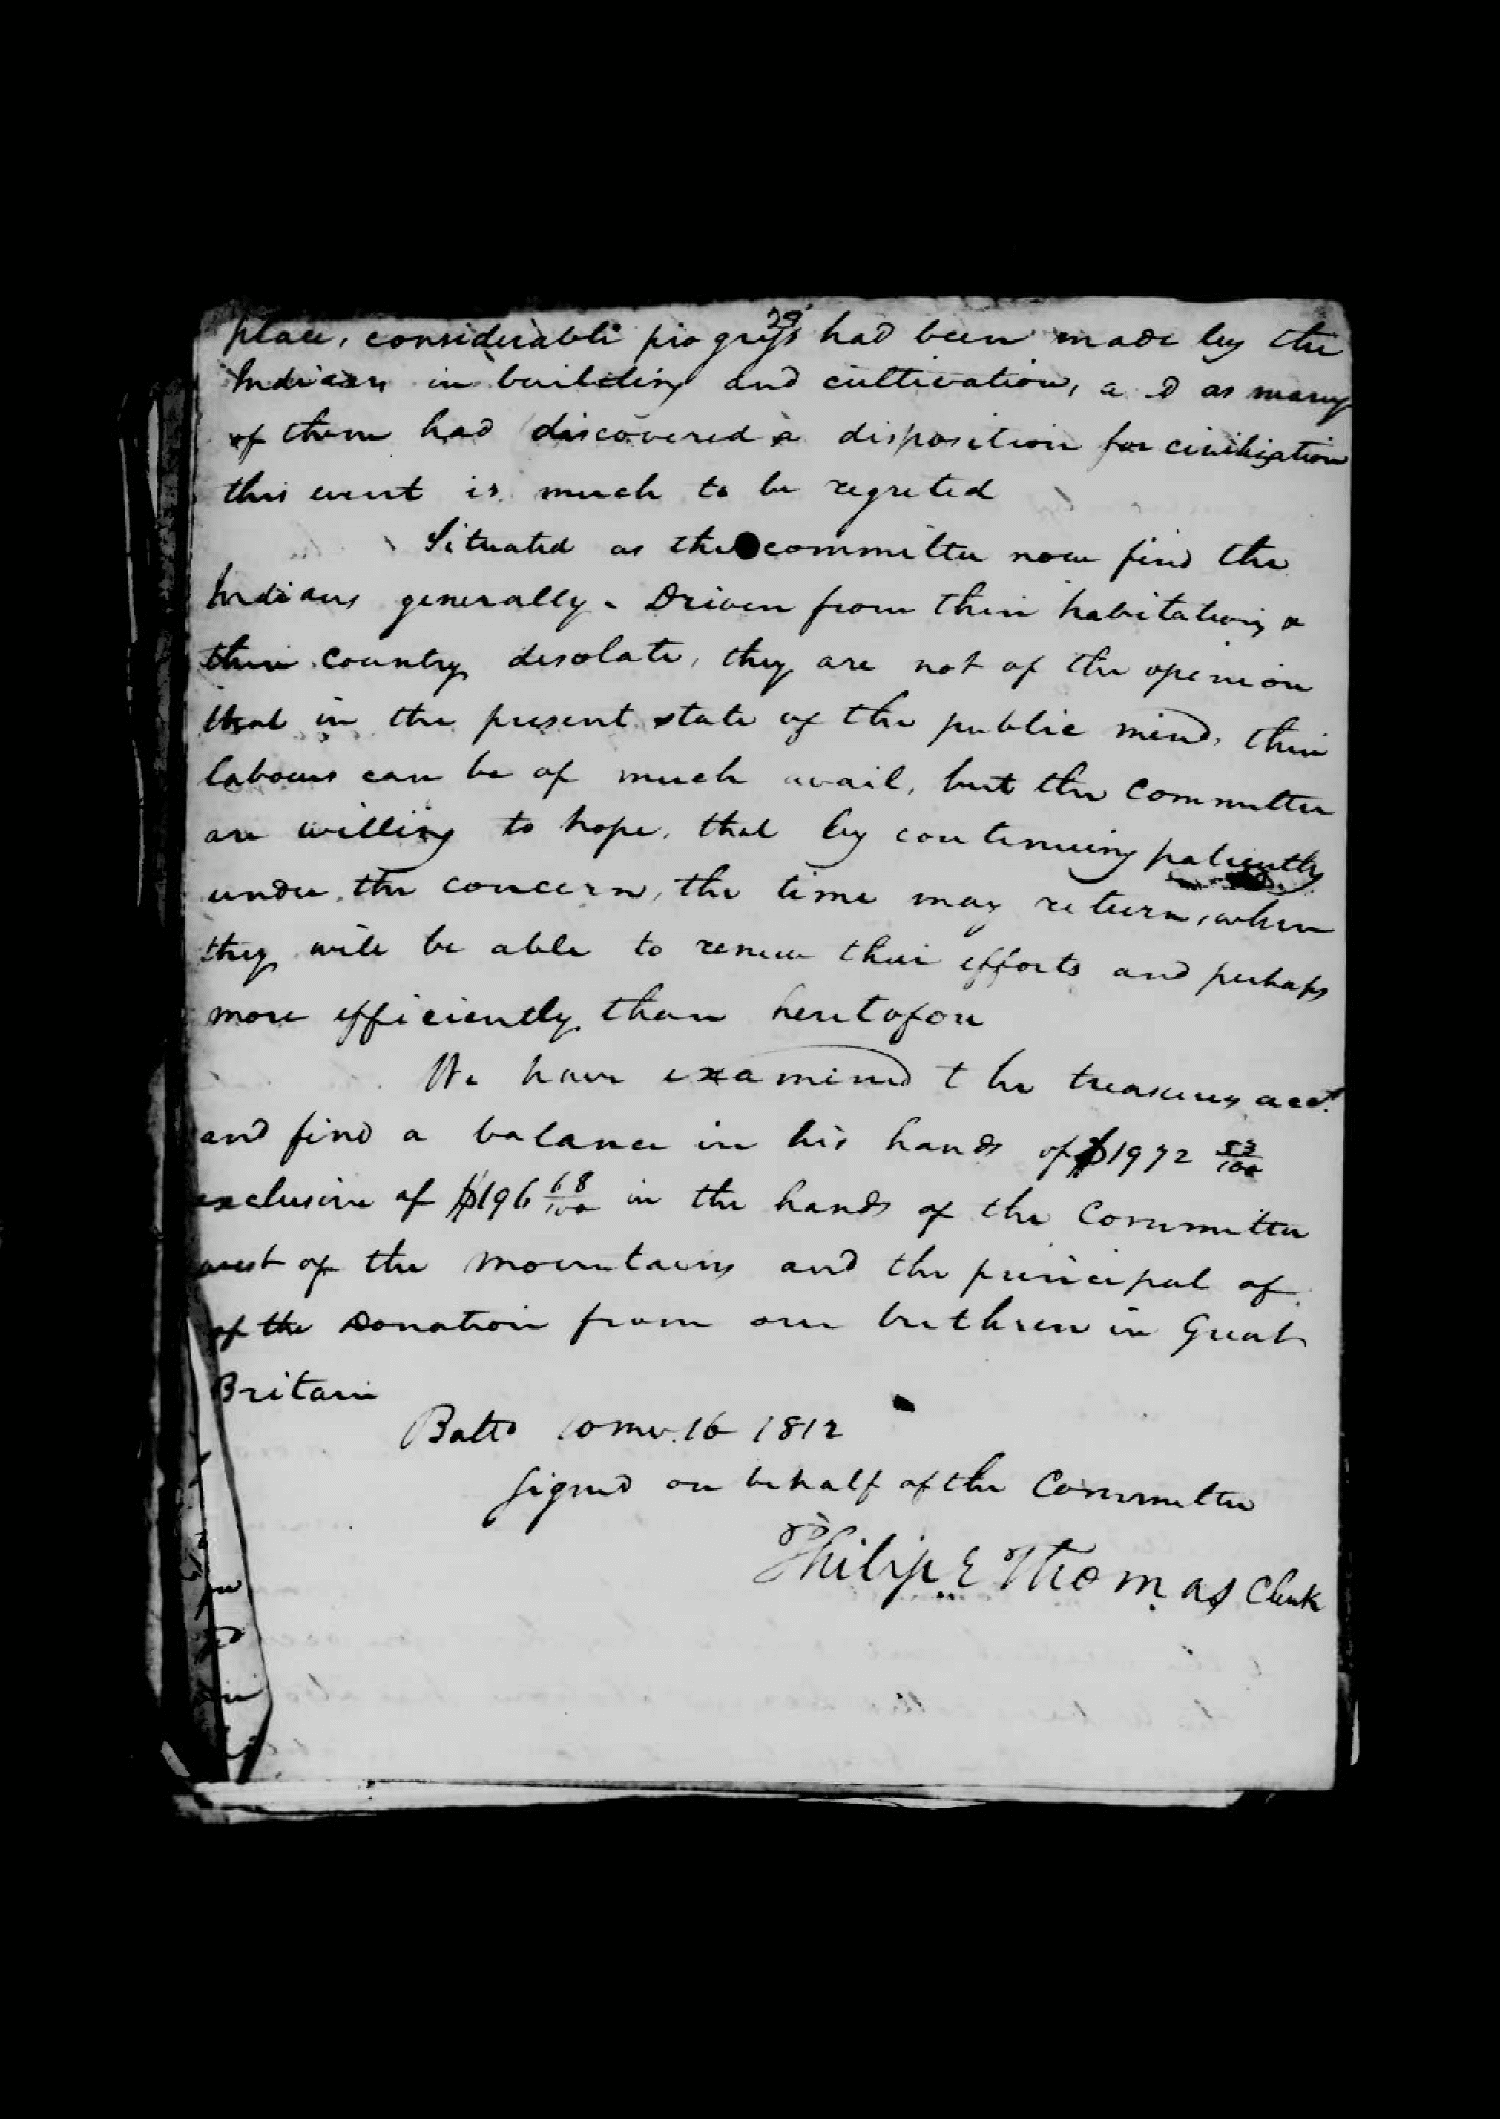 29
place, considerable progress had been made by the
Indians in building and cultivation, a d as many
of them had discovered a disposition for civilization
this event is much to be regreted
Situated as the committee now find the
Indians generally - Driven from their habitations &
their country desolate, they are not of the opinion
that in the present state of the public mind, their
labours can be of much avail, but the Committee
are willing to hope, that by continuing patiently
under the concern, the time may return, when
they will be able to renew their efforts and perhaps
more efficiently than heretofore
We have examined the treasurers acct.
and find a balance in his hands of $1972 53/100
exclusive of $196 68/100 in the hands of the Committee
west of the mountains and the principal of
of the Donation from our brethren in Great
Britain
Balto 10 mo. 16 1812
Signed on behalf of the Committee
Philip E Thomas Clerk